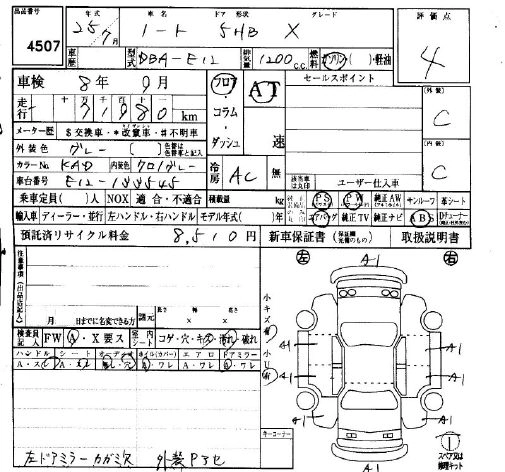 出品番号
4507
年式
25年7月
車名
ノート
ドア 形状
5HB
グレード
X
評価点
4
車歴
型式
DBA-E12
排気量
1200 C.C.
燃料
ガソリン・( )・軽油
車検
8年9月
走行
71980 km
フロア・コラム・ダッシュ
AT
速
セールスポイント
(外装)
C
(内装)
C
メーター歴 $交換車・*改竄車・#不明車
外装色
グレー
( )
色替は色替車と記入
カラーNo.
KAD
内装色
クロ/グレー
車台番号
冷房
AC
無
該当車は丸印
ユーザー仕入車
乗車定員( )人
NOX 適合・不適合
積載量
kg
PS
PW
純正AW
サンルーフ
革シート
輸入車 ディーラー・並行
左ハンドル・右ハンドル
モデル年式( )年
エアバッグ
純正TV
純正ナビ
ABS
預託済リサイクル料金
8,510円
新車保証書
(保証継承のもの)
取扱説明書
注意事項(出品店記入)
月
日までに名変できる方
諸元
長さ
幅
高さ
× ×
検査員記入
FW
A・X要ス
室内
シート
コゲ・穴・キズ・汚れ・破れ
ハンドル
シート
エアロ
ドアミラー
A・スレ
A・ワレ
A・ワレ
左ドアミラー カガミヌ
外装Pヨセ
キーコーナー
小キズ有
小U有
左
右
A1
A1
A1
A1
A1
A1
A1
A1
スペア又は修理キット